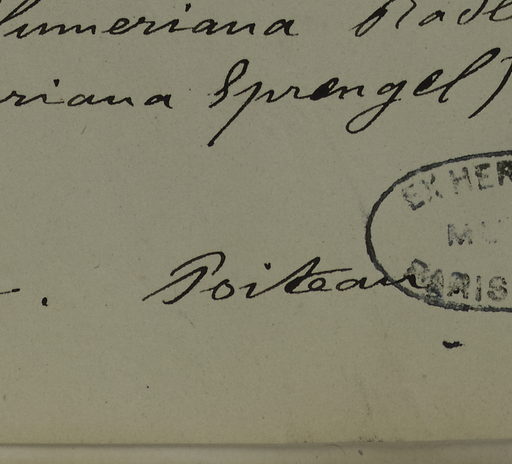 lumeriana Radl
riana Sprengel)
Poiteau
EX HER
MU
PARIS